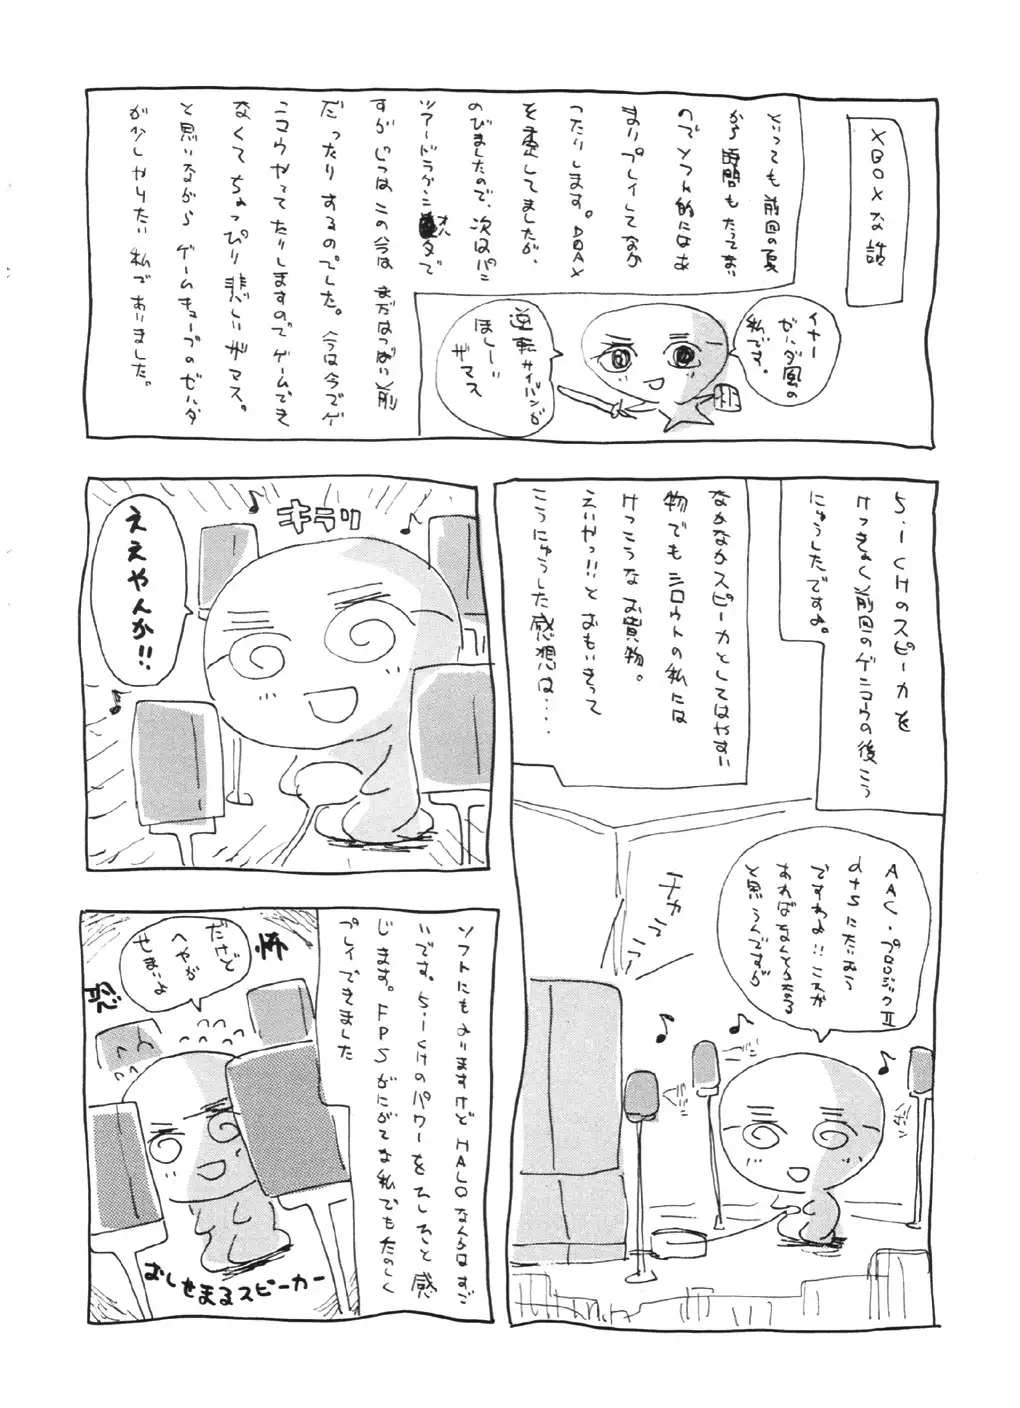 XBOXな話
といっても前回の夏
から時間もたってまい
のでソフト的にはあ
まりプレイしてなか
ったりします。DOAX
を楽ししてましたが、
のびましたので、次はパン
ツァードラグーンオルタで
すがじつはこの今はまだはつばい前
だったりするのでした。今は今でゲ
ニコウやってたりしますのでゲームでき
なくてちょっぴり悲しいザマス。
と思いながらゲームキューブのゼルダ
が少しやりたい私でありました。
イナー
ゼルダ風の
私です。
逆転サイバンが
ほしーい
ザマス
5.1CHのスピーカを
けっきょく前回のゲニコウの後こう
にゅうしたですよ。
なかなかスピーカとしてはやすい
物でもシロウトの私には
けっこうなお買物。
えいやっ!!とおもいきって
こうにゅうした感想は‥‥
AAC・プロロジックII
dtsにたいおう
ですわよ!!これが
あればなんでもなる
と思うんですが
チカッ
キラリ
ええやんか!!
ソフトにもよりますけどHALOなんらはすご
いです。5.1CHのパワーをひしひしと感
じます。FPSがにがてな私でもたのしく
プレイできました
だけど
へやが
せまいよ
怖
恐
おしせまるスピーカー